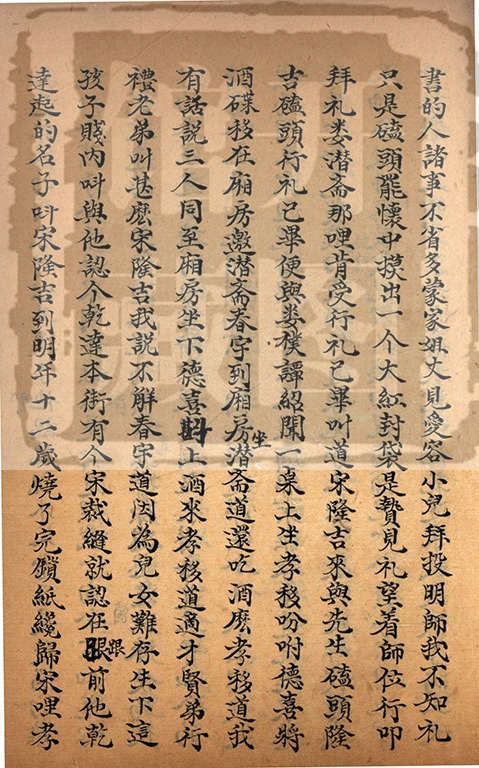 書的人諸事不省多蒙家姐丈見愛容小兒拜投明師我不知礼
只是磕頭罷懷中摸出一个大紅封袋是贄見礼望着師位行叩
拜礼娄潜斋那哩肯受行礼已畢叫道宋隆吉來與先生磕頭隆
吉磕頭行礼已畢便與娄樸譚紹聞一桌上坐孝移吩咐德喜將
酒碟移在廂房邀潜斋春宇到廂房坐潜斋道還吃酒麽孝移道我
有話説三人同至廂房坐下德喜斟上酒來孝移道適才賢弟行
禮老弟叫甚麽宋隆吉我説不觧春宇道因為兒女難存生下這
孩子賤内呌與他認个乾達本街有个宋裁縫就認在跟前他乾
達起的名子呌宋隆吉到明年十二歲燒了完鎖紙纔歸宋哩孝